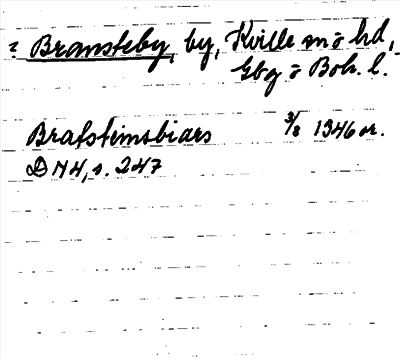 : Bransteby, by, Kville sn o hd,
Gbg o Boh. l.
Brafsteinsbiars 3/8 1346 or.
DN 4, s. 247